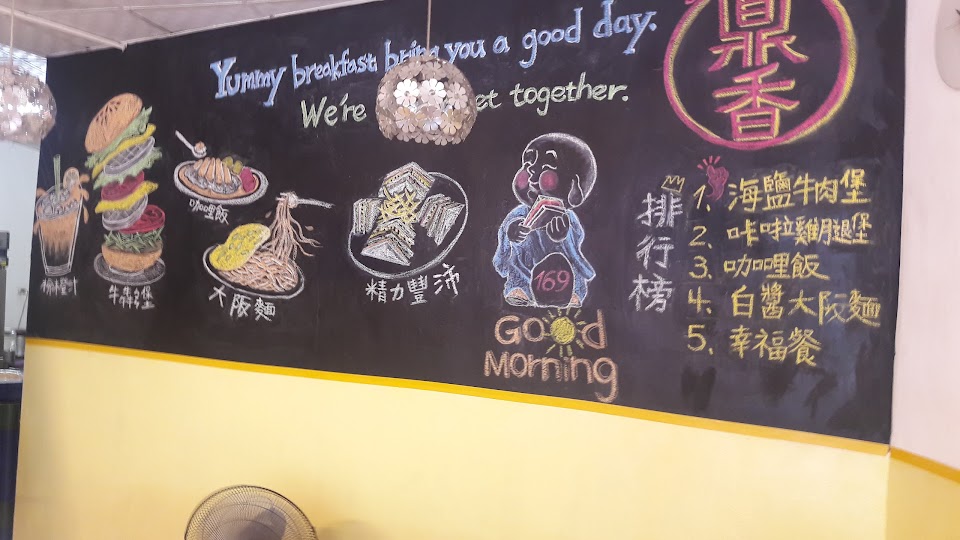 Yummy breakfast bring you a good day.
We're get together.
鼎香
咖哩飯
柳橙汁
牛特多堡
大阪麵
精力豐沛
169
Good
Morning
排行榜
1. 海鹽牛肉堡
2. 咔啦雞腿堡
3. 咖哩飯
4. 白醬大阪麵
5. 幸福餐